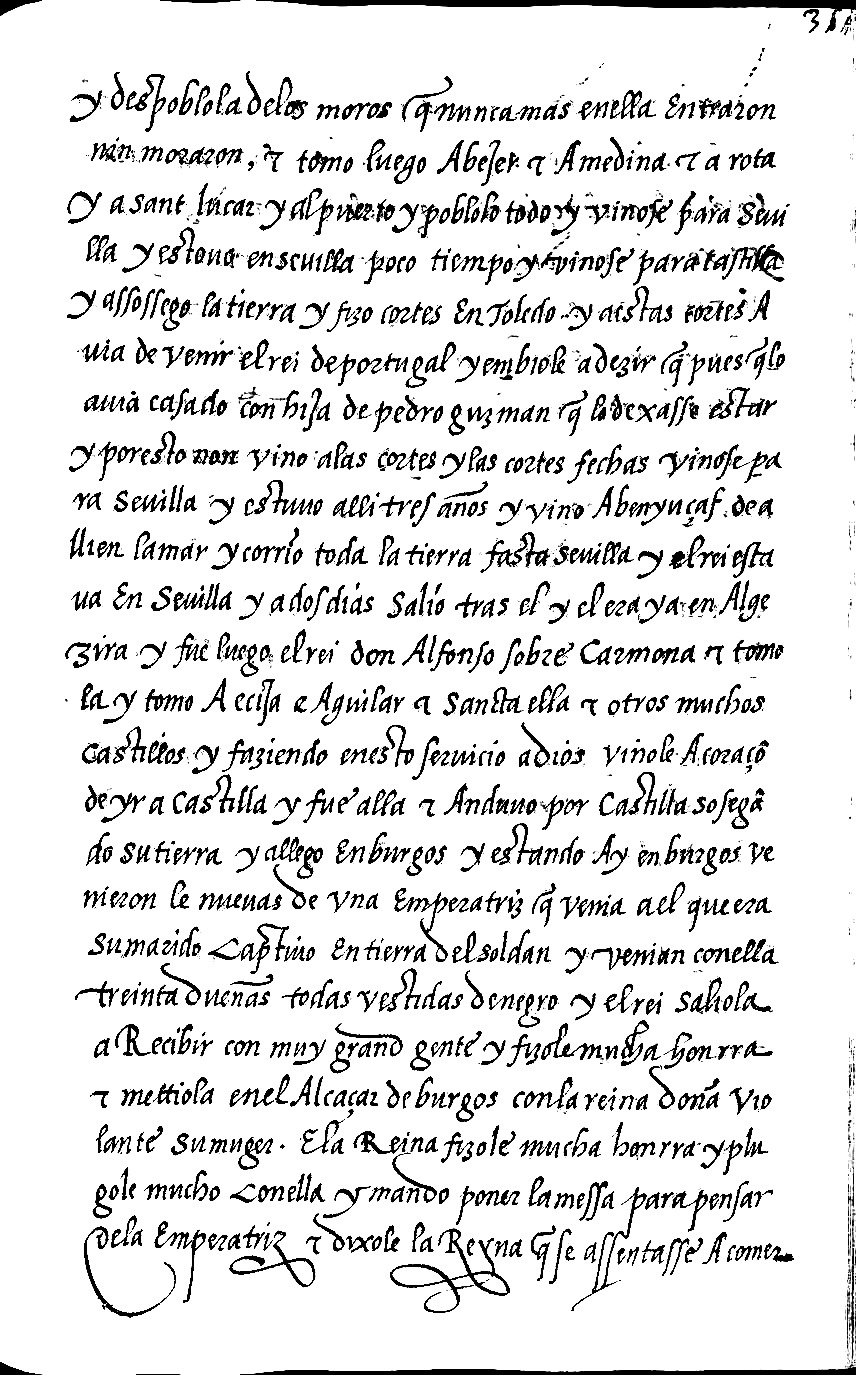 y despoblola delos moros q̃ nunca mas enella Entraron
nin moraron, ⁊ tomo luego Abejer ⁊ Amedina ⁊ a rota
y a sant lucar y al puerto y poblolo todo y vinose para Sevi
lla y estovo en sevilla poco tiempo y vinose para castilla
y assossego la tierra y fizo cortes En Toledo y aestas cortes A
via de venir el rei de portugal y embiole a dezir q̃ pues q̃ lo
avia casado con hija de pedro guzman q̃ lo dexasse estar
y por esto non vino alas cortes y las cortes fechas vinose pa
ra Sevilla y estuvo alli tres años y vino Abenyuçaf de a
llien la mar y corrio toda la tierra fasta sevilla y el rei esta
va En Sevilla y a dos dias Salio tras el y el era ya en Alge
zira y fue luego el rei don Alfonso sobre Carmona ⁊ tomo
la y tomo A ecija e Aguilar ⁊ Sancta ella ⁊ otros muchos
Castillos y faziendo enesto servicio a dios vinole A coraçõ
de yr a Castilla y fue alla ⁊ Anduvo por Castilla sosegã
do su tierra y allego En burgos y estando Ay en burgos ve
nieron le nuevas de vna Emperatriz q̃ venia a el que era
su marido Captivo En tierra del soldan y venian conella
treinta dueñas todas vestidas de negro y el rei Saliola
a Recibir con muy grand gente y fizole mucha honrra
⁊ mettiola enel Alcaçar de burgos con la reina doña vio
lante su muger. E la Reina fizole mucha honrra y plu
gole mucho Conella y mando poner la messa para pensar
dela Emperatriz ⁊ dixole la Reyna q̃ se assentasse A comer